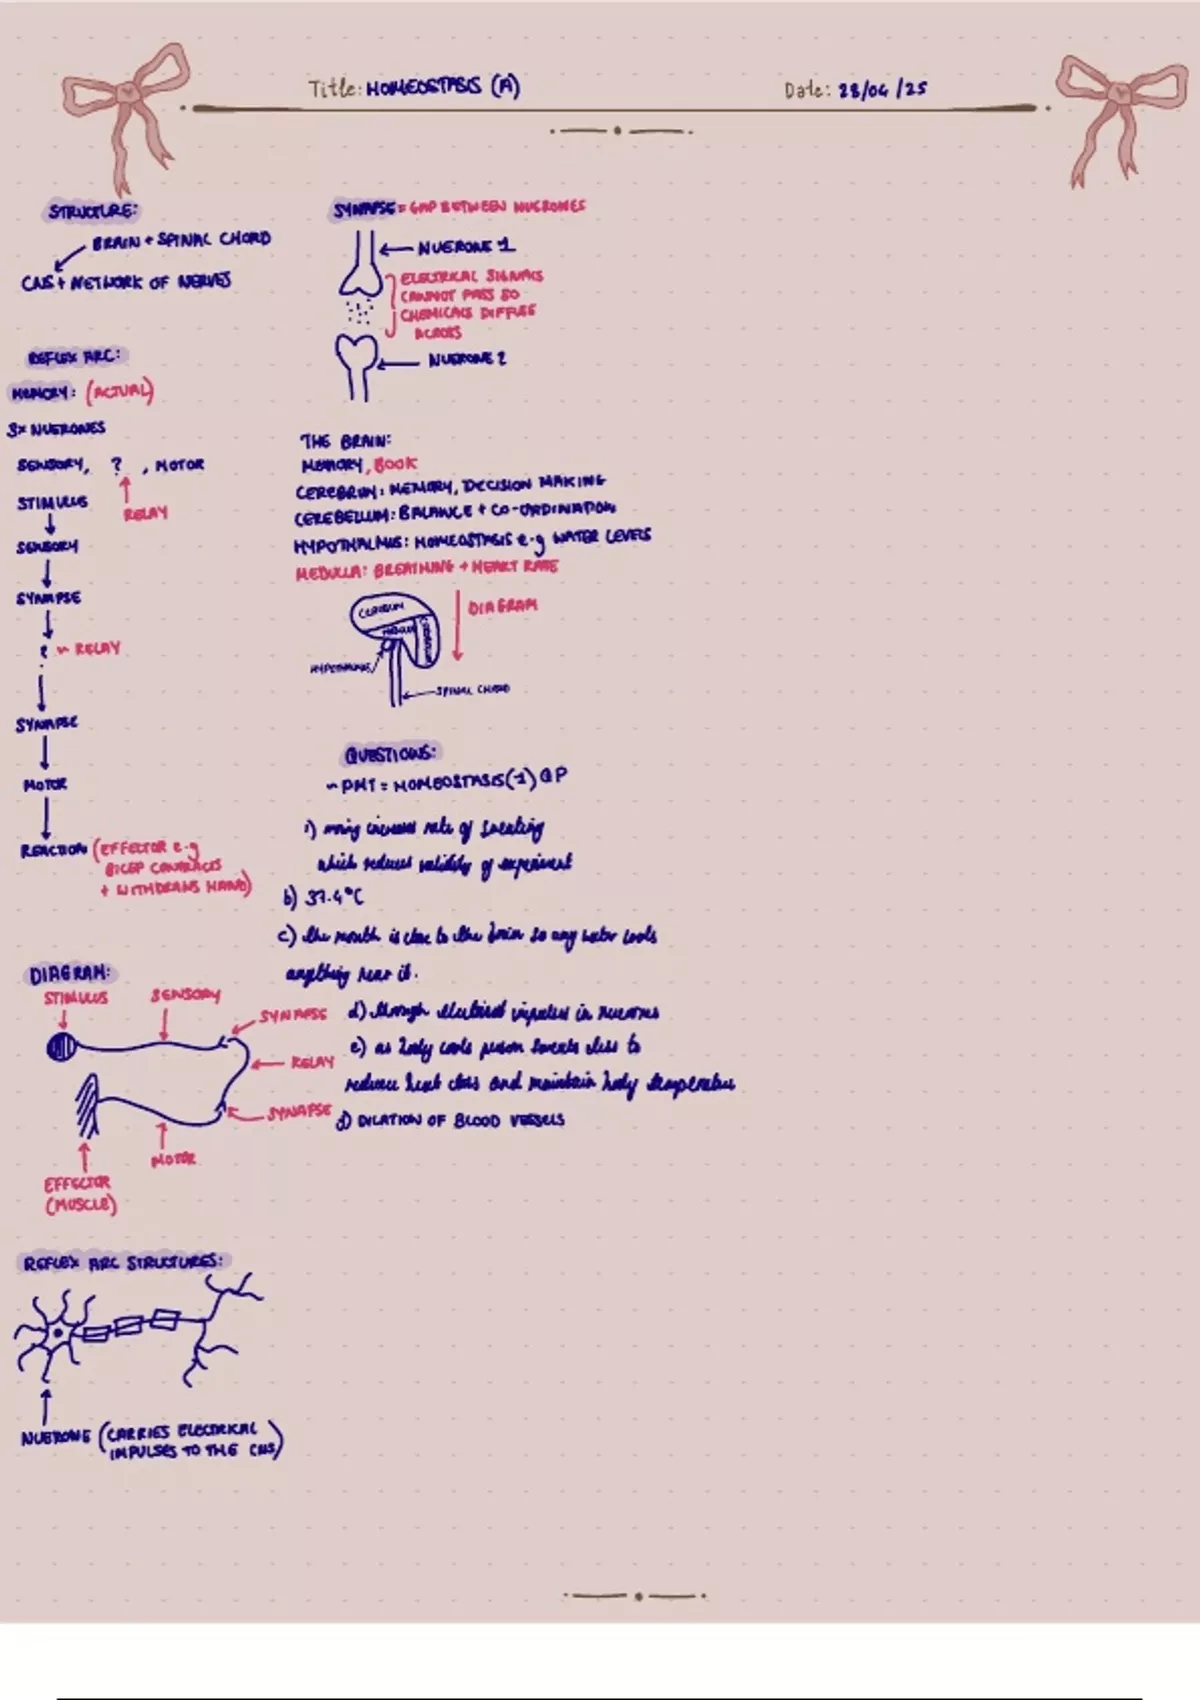 Title: HOMEOSTASIS (A)
Date: 28/04/25
STRUCTURE:
BRAIN + SPINAL CHORD
CNS + NETWORK OF NERVES
REFLEX ARC:
MEMORY: (ACTUAL)
3x NUERONES
SENSORY, ? , MOTOR
RELAY
STIMULUS
SENSORY
SYNAPSE
? ~ RELAY
SYNAPSE
MOTOR
REACTION (EFFECTOR e.g
BICEP CONTRACTS
+ WITHDRAWS HAND)
DIAGRAM:
STIMULUS
SENSORY
SYNAPSE
RELAY
SYNAPSE
MOTOR
EFFECTOR
(MUSCLE)
REFLEX ARC STRUCTURES:
NUERONE (CARRIES ELECTRICAL
IMPULSES TO THE CNS)
SYNAPSE = GAP BETWEEN NUERONES
NUERONE 1
ELECTRICAL SIGNALS
CANNOT PASS SO
CHEMICALS DIFFUSE
ACROSS
NUERONE 2
THE BRAIN:
MEMORY, BOOK
CEREBRUM: MEMORY, DECISION MAKING
CEREBELLUM: BALANCE + CO-ORDINATION
HYPOTHALMUS: HOMEOSTASIS e.g WATER LEVELS
MEDULLA: BREATHING + HEART RATE
DIAGRAM
SPINAL CHORD
QUESTIONS:
~ PMT = HOMEOSTASIS (1) QP
1) moving increases rate of sweating
which reduces validity of experiment
b) 37.4°C
c) the mouth is close to the brain so any water cools
anything near it.
d) through electrical impulses in nuerones
e) as body cools person sweats less to
reduce heat loss and maintain body temperature
d) DILATION OF BLOOD VESSELS